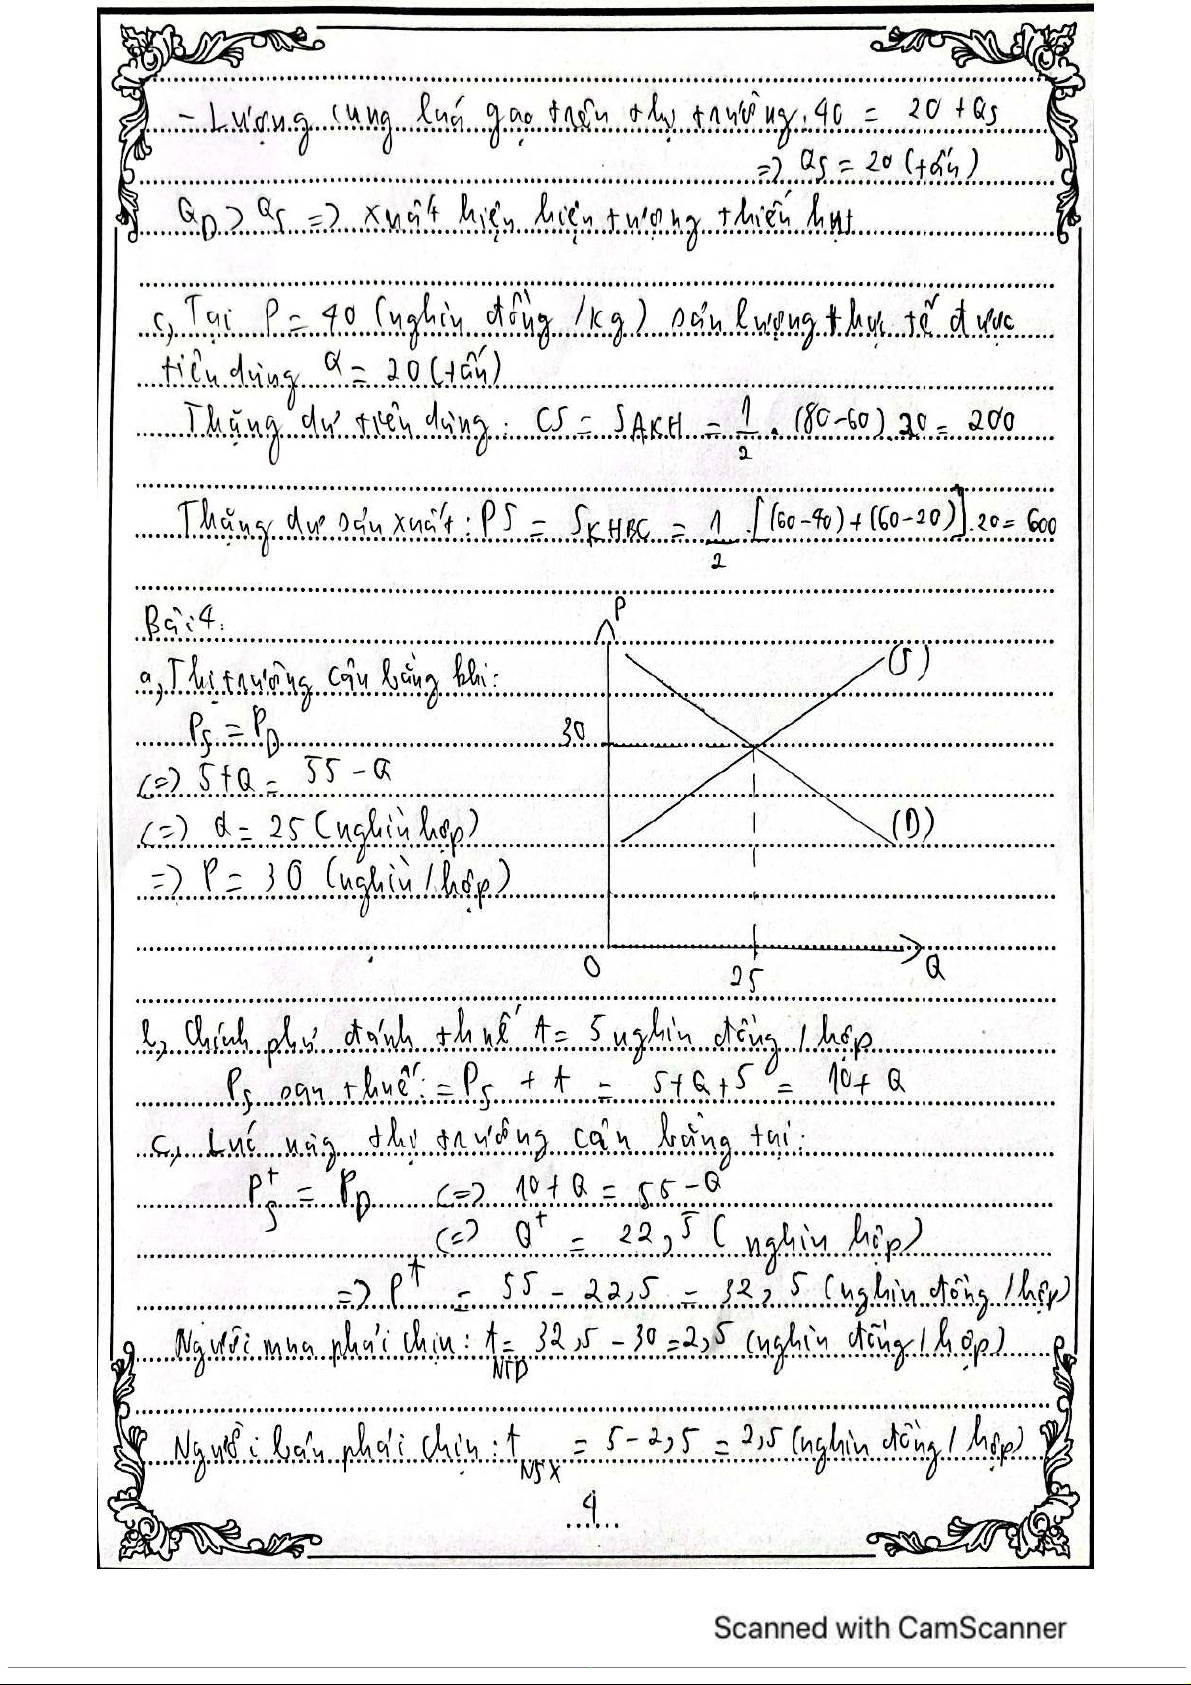 - Lượng cung lúa gạo trên thị trường: 40 = 20 + Qs
=> Qs = 20 (tấn)
QD > Qs => xuất hiện hiện tượng thiếu hụt
c, Tại P = 40 (nghìn đồng /kg) sản lượng thực tế được
tiêu dùng Q = 20 (tấn)
Thặng dư tiêu dùng: CS = SAKH = 1/2 . (80-60).20 = 200
Thặng dư sản xuất: PS = SKHBC = 1/2 .[(60-40)+(60-20)].20 = 600
Bài 4:
a, Thị trường cân bằng khi:
Ps = PD
(=) 5+Q = 55 - Q
(=) Q = 25 (nghìn hộp)
=> P = 30 (nghìn / hộp)
P
(S)
30
(D)
0
25
Q
b, Chính phủ đánh thuế t = 5 nghìn đồng / hộp
Ps sau thuế: = Ps + t = 5+Q+5 = 10+ Q
c, Lúc này thị trường cân bằng tại:
Pst = PD (=) 10+Q = 55-Q
(=) Qt = 22,5 ( nghìn hộp)
=> Pt = 55 - 22,5 = 32,5 (nghìn đồng / hộp)
Người mua phải chịu: tNTD = 32,5 - 30 = 2,5 (nghìn đồng / hộp)
Người bán phải chịu: tNSX = 5 - 2,5 = 2,5 (nghìn đồng / hộp)
4
Scanned with CamScanner